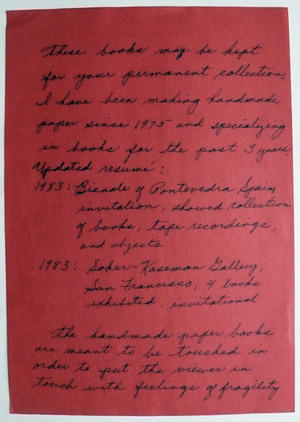 These books may be kept
for your permanent collection.
I have been making handmade
paper since 1975 and specializing
in books for the past 3 years.
Updated resumé:
1983: Bienale of Pontevedra Spain,
invitation, showed collection
of books, tape recordings,
and objects
1983: Soker-Kaseman Gallery,
San Francisco, 4 books
exhibited, invitational
The handmade paper books
are meant to be touched in
order to put the viewer in
touch with feelings of fragility